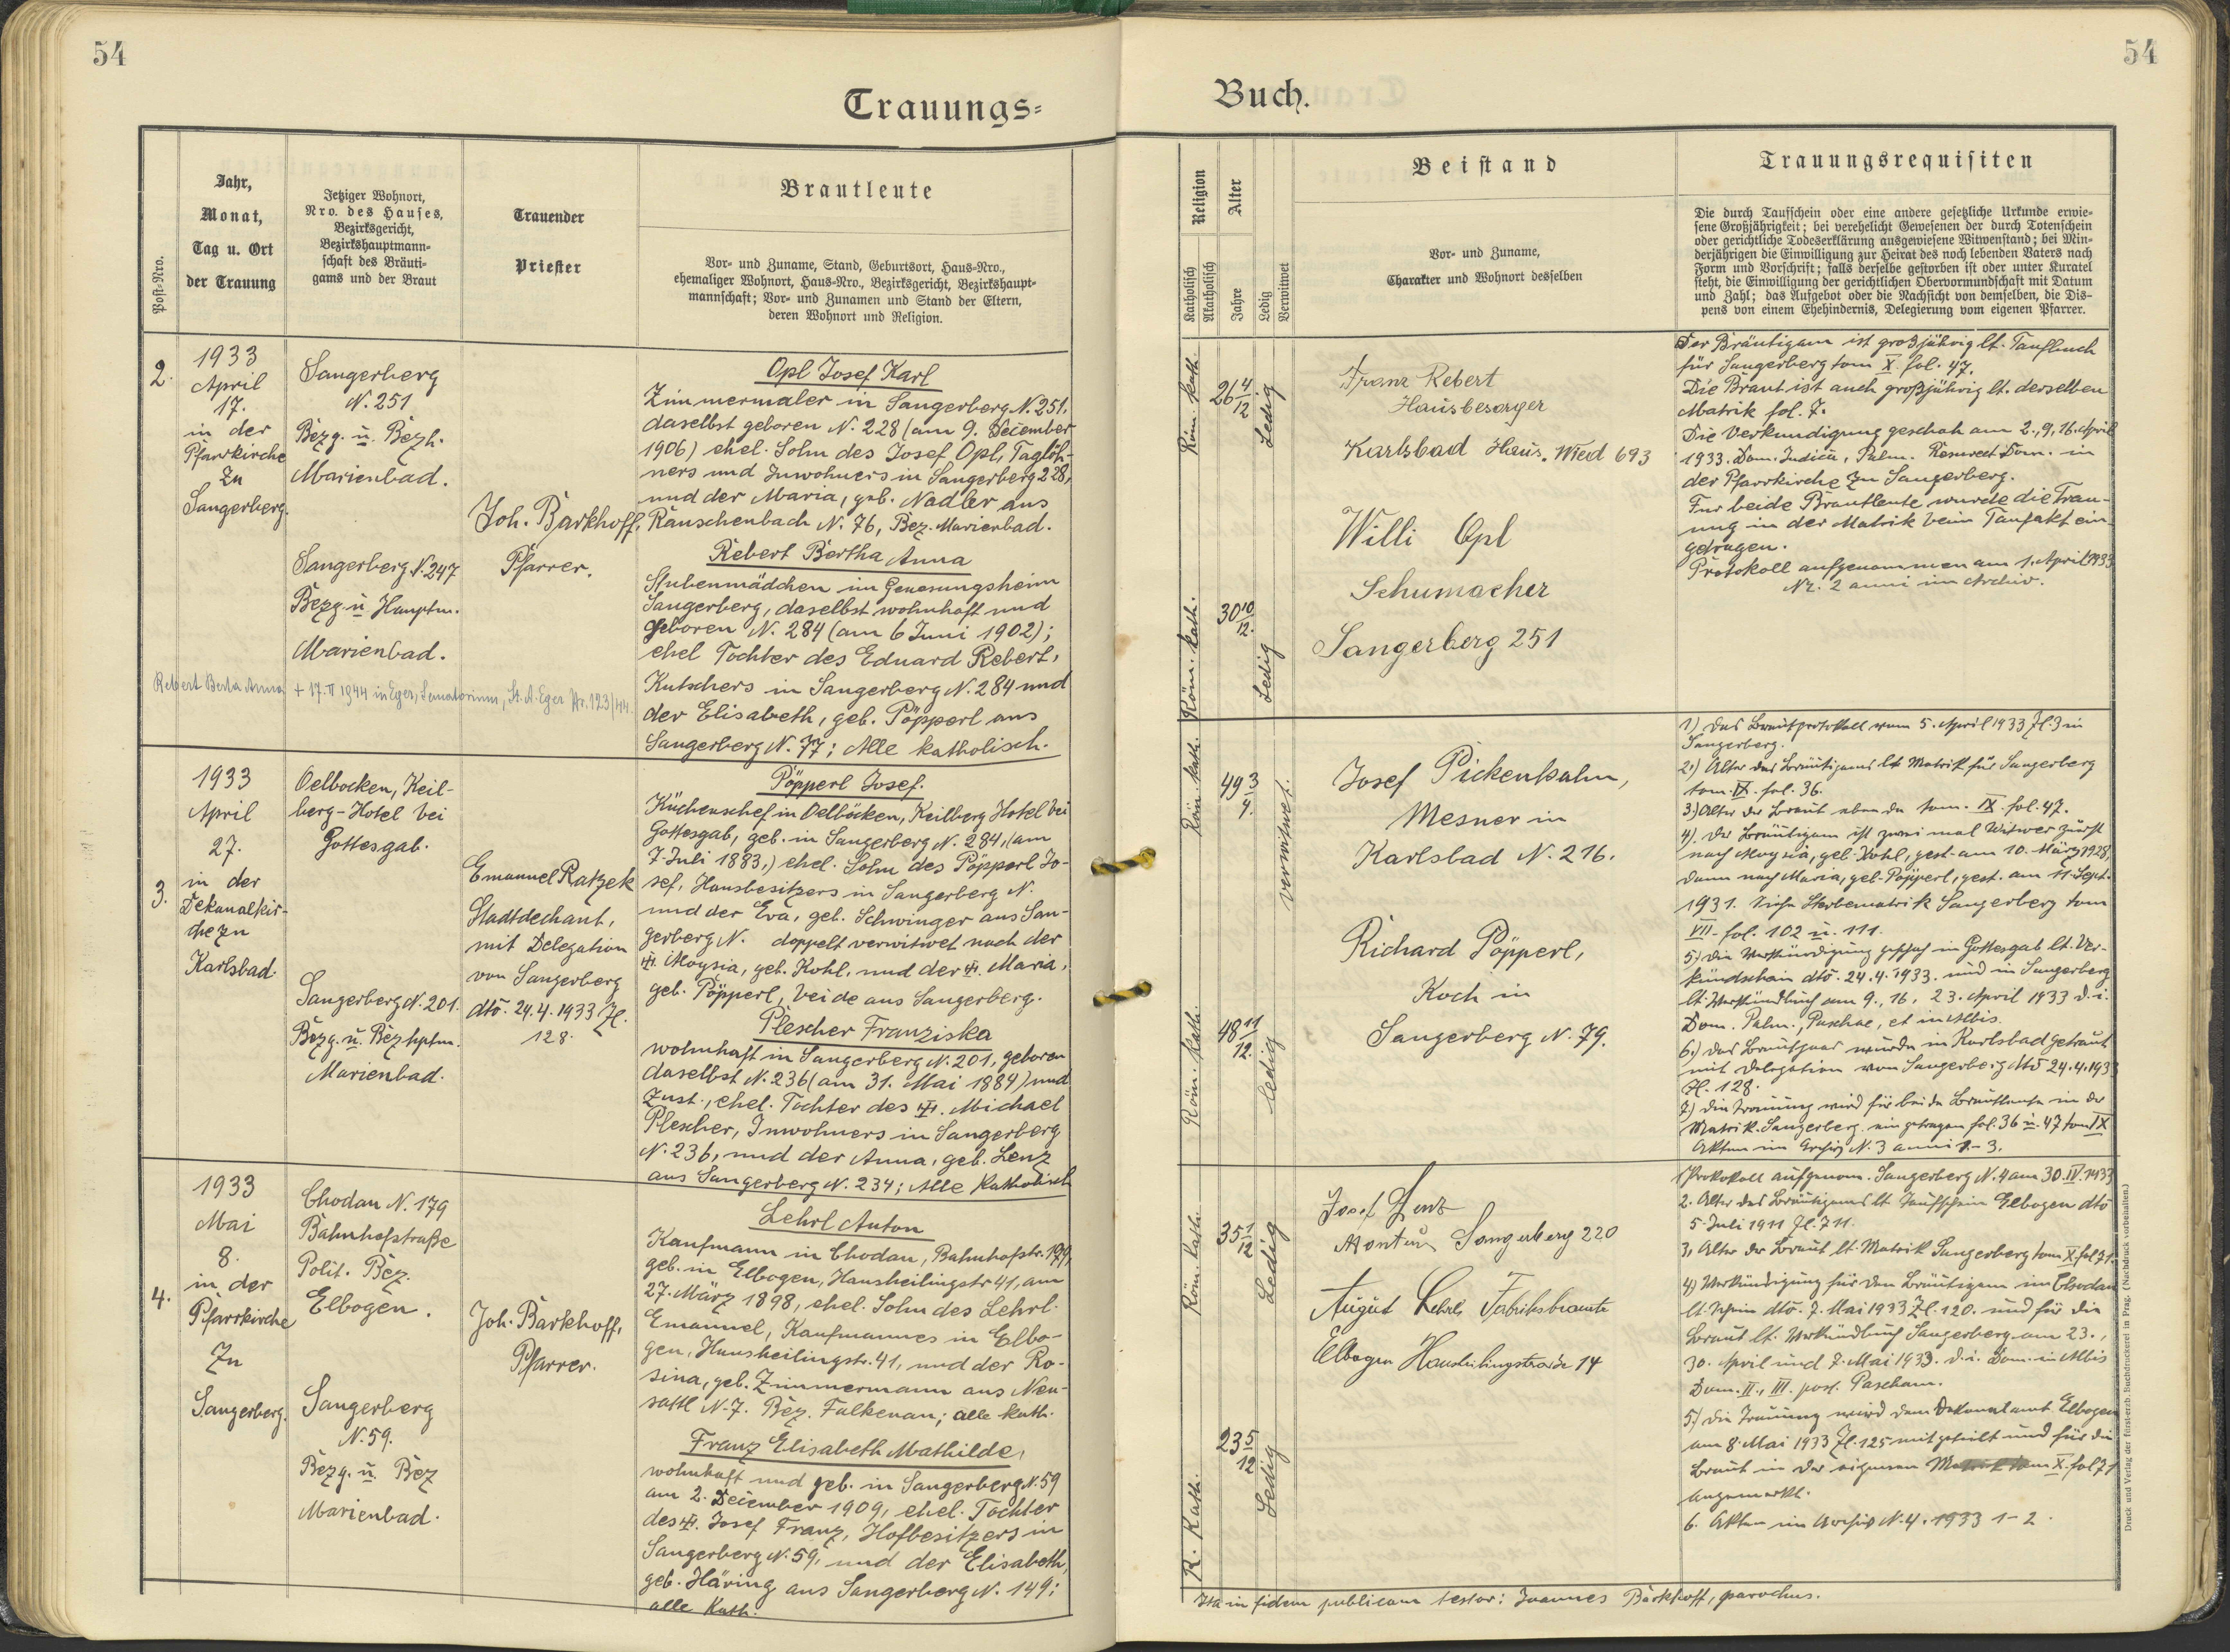 54
54
Trauungs-
Buch.
Post-Nro.
Jahr,
Monat,
Tag u. Ort
der Trauung
Jetziger Wohnort,
Nro. des Hauses,
Bezirksgericht,
Bezirkshauptmann-
schaft des Bräuti-
gams und der Braut
Trauender
Priester
Brautleute
Vor- und Zuname, Stand, Geburtsort, Haus-Nro.,
ehemaliger Wohnort, Haus-Nro., Bezirksgericht, Bezirkshaupt-
mannschaft; Vor- und Zunamen und Stand der Eltern,
deren Wohnort und Religion.
Religion
Katholisch
Akatholisch
Alter
Jahre
Ledig
Verwitwet
Beistand
Vor- und Zuname,
Charakter und Wohnort desselben
Trauungsrequisiten
Die durch Taufschein oder eine andere gesetzliche Urkunde erwie-
sene Großjährigkeit; bei verehelicht Gewesenen der durch Totenschein
oder gerichtliche Todeserklärung ausgewiesene Witwenstand; bei Min-
derjährigen die Einwilligung zur Heirat des noch lebenden Vaters nach
Form und Vorschrift; falls derselbe gestorben ist oder unter Kuratel
steht, die Einwilligung der gerichtlichen Obervormundschaft mit Datum
und Zahl; das Aufgebot oder die Nachsicht von demselben, die Dis-
pens von einem Ehehindernis, Delegierung vom eigenen Pfarrer.
2.
1933
April
17.
in der
Pfarrkirche
zu
Sangerberg.
Sangerberg
N. 251
Bezg. u. Bezh.
Marienbad.
Sangerberg N. 247
Bezg. u. Hauptm.
Marienbad.
Joh. Barkhoff,
Pfarrer.
Opl Josef Karl
Zimmermaler in Sangerberg N. 251,
daselbst geboren N. 228 (am 9. December
1906) ehel. Sohn des Josef Opl, Taglöh-
ners und Inwohners in Sangerberg 228,
und der Maria, geb. Nadler aus
Rauschenbach N. 76, Bez. Marienbad.
Rebert Bertha Anna
Stubenmädchen im Genesungsheim
Sangerberg, daselbst wohnhaft und
geboren N. 284 (am 6 Juni 1902);
ehel Tochter des Eduard Rebert,
Kutschers in Sangerberg N. 284 und
der Elisabeth, geb. Pöpperl aus
Sangerberg N. 77; Alle katholisch.
Rebert Berta Anna + 17. II 1944 in Eger, Sanatorium, St. A. Eger Nr. 123/44.
Röm. kath.
26 4/12
Ledig
Franz Rebert
Hausbesorger
Karlsbad Haus. Wied 693
Röm. kath.
30 10/12.
Ledig
Willi Opl
Schumacher
Sangerberg 251
Der Bräutigam ist großjährig lt. Taufbuch
für Sangerberg tom X. fol. 47.
Die Braut ist auch großjährig lt. derselben
Matrik fol. 7.
Die Verkundigung geschah am 2., 9., 16. April
1933. Dom. Judica, Palm. Resurrect Dom. in
der Pfarrkirche zu Sangerberg.
Fur beide Brautleute wurde die Trau-
ung in der Matrik beim Taufakt ein-
getragen.
Protokoll aufgenommen am 1. April 1933
Nr. 2 anni im Archiv.
3.
1933
April
27.
in der
Dekanalkir-
che zu
Karlsbad.
Oelbocken, Keil-
berg-Hotel bei
Gottesgab.
Sangerberg N. 201.
Bezg. u. Bezhptm.
Marienbad.
Emanuel Ratzek
Stadtdechant,
mit Delegation
von Sangerberg
dtō. 24. 4. 1933 Zl.
128.
Pöpperl Josef.
Küchenschef in Oelböcken, Keilberg Hotel bei
Gottesgab, geb. in Sangerberg N. 284, (am
7. Juli 1883,) ehel. Sohn des Pöpperl Jo-
sef, Hausbesitzers in Sangerberg N.
und der Eva, geb. Schwinger aus San-
gerberg N. doppelt verwitwet nach der
Aloysia, geb. Kohl, und der Maria,
geb. Pöpperl, beide aus Sangerberg.
Plescher Franziska
wohnhaft in Sangerberg N. 201, geboren
daselbst N. 236 (am 31. Mai 1884) und
zust., ehel. Tochter des Michael
Plescher, Inwohners in Sangerberg
N. 236, und der Anna, geb. Lenz
aus Sangerberg N. 234; Alle katholisch
Röm. kath.
49 3/4.
verwitwet.
Josef Pickenhahn,
Mesner in
Karlsbad N. 216.
Röm. kath.
48 11/12.
ledig
Richard Pöpperl,
Koch in
Sangerberg N. 79.
1) Das Brautprotokoll vom 5. April 1933 Zl. 3 in
Sangerberg.
2.) Alter des Bräutigams lt Matrik für Sangerberg
tom. IX. fol. 36.
3.) Alter der Braut eben da tom. IX. fol. 47.
4). Der Bräutigam ist zweimal Witwer zuerst
nach Aloysia, geb. Kohl, gest. am 10. März 1928,
dann nach Maria, geb. Pöpperl, gest. am 11. Sept.
1931. Siehe Sterbematrik Sangerberg tom
VII. fol. 102 u. 111.
5.) Die Verkündigung geschah in Gottesgab lt. Ver-
kündschein dtō. 24. 4. 1933. und in Sangerberg
lt. Verkündbuch am 9., 16., 23. April 1933 d. i.
Dom. Palm., Paschae, et in Albis.
6.) Das Brautpaar wurde in Karlsbad getraut
mit Delegation von Sangerberg dtō 24. 4. 1933
Zl. 128.
7.) Die Trauung wird für beide Brautleute in der
Matrik Sangerberg eingetragen fol. 36 u. 47 tom IX
Akten im Archiv N. 3 anni 1-3.
4.
1933
Mai
8.
in der
Pfarrkirche
zu
Sangerberg.
Chodau N. 179
Bahnhofstraße
Polit. Bez.
Elbogen.
Sangerberg
N. 59.
Bezg. u. Bez
Marienbad.
Joh. Barkhoff,
Pfarrer.
Lehrl Anton
Kaufmann in Chodau, Bahnhofstr. 179,
geb. in Elbogen, Hansheilingstr. 41, am
27. März 1898, ehel. Sohn des Lehrl.
Emanuel, Kaufmannes in Elbo-
gen, Hansheilingstr. 41, und der Ro-
sina, geb. Zimmermann aus Neu-
sattl N. 7. Bez. Falkenau; alle kath.
Franz Elisabeth Mathilde,
wohnhaft und geb. in Sangerberg N. 59
am 2. December 1909, ehel. Tochter
des Josef Franz, Hofbesitzers in
Sangerberg N. 59, und der Elisabeth,
geb. Häring aus Sangerberg N. 149;
alle Kath.
Röm. kath.
35 1/12
Ledig
Josef Lenz
Monteur Sangerberg 220
R. Kath.
23 5/12
Ledig
August Lehrl, Fabriksbeamte
Elbogen Hansheilingstrasse 14
1) Protokoll aufgenom. Sangerberg N. 4 am 30. IV. 1933
2. Alter des Bräutigams lt. Taufschein Elbogen dtō
5. Juli 1911 Zl. 711.
3, Alter der Braut lt. Matrik Sangerberg tom X. fol 71.
4) Verkündigung für den Bräutigam im Chodau
lt. Schein dtō. 7. Mai 1933 Zl. 120. und für die
Braut lt. Verkündbuch Sangerberg am 23.,
30. April und 7. Mai 1933. d. i. Dom. in Albis
Dom. II., III. post. Pascham.
5.) Die Trauung wird dem Dekanalamt Elbogen
am 8. Mai 1933 Zl. 125 mitgeteilt und für die
Braut in der eigenen Matrik tom X. fol 71
angemerkt.
6. Akten im Archiv N. 4. 1933 1-2.
Ita in fidem publicam testor: Joannes Barkhoff, parochus.
Druck und Verlag der fürst-erzb. Buchdruckerei in Prag. (Nachdruck vorbehalten.)